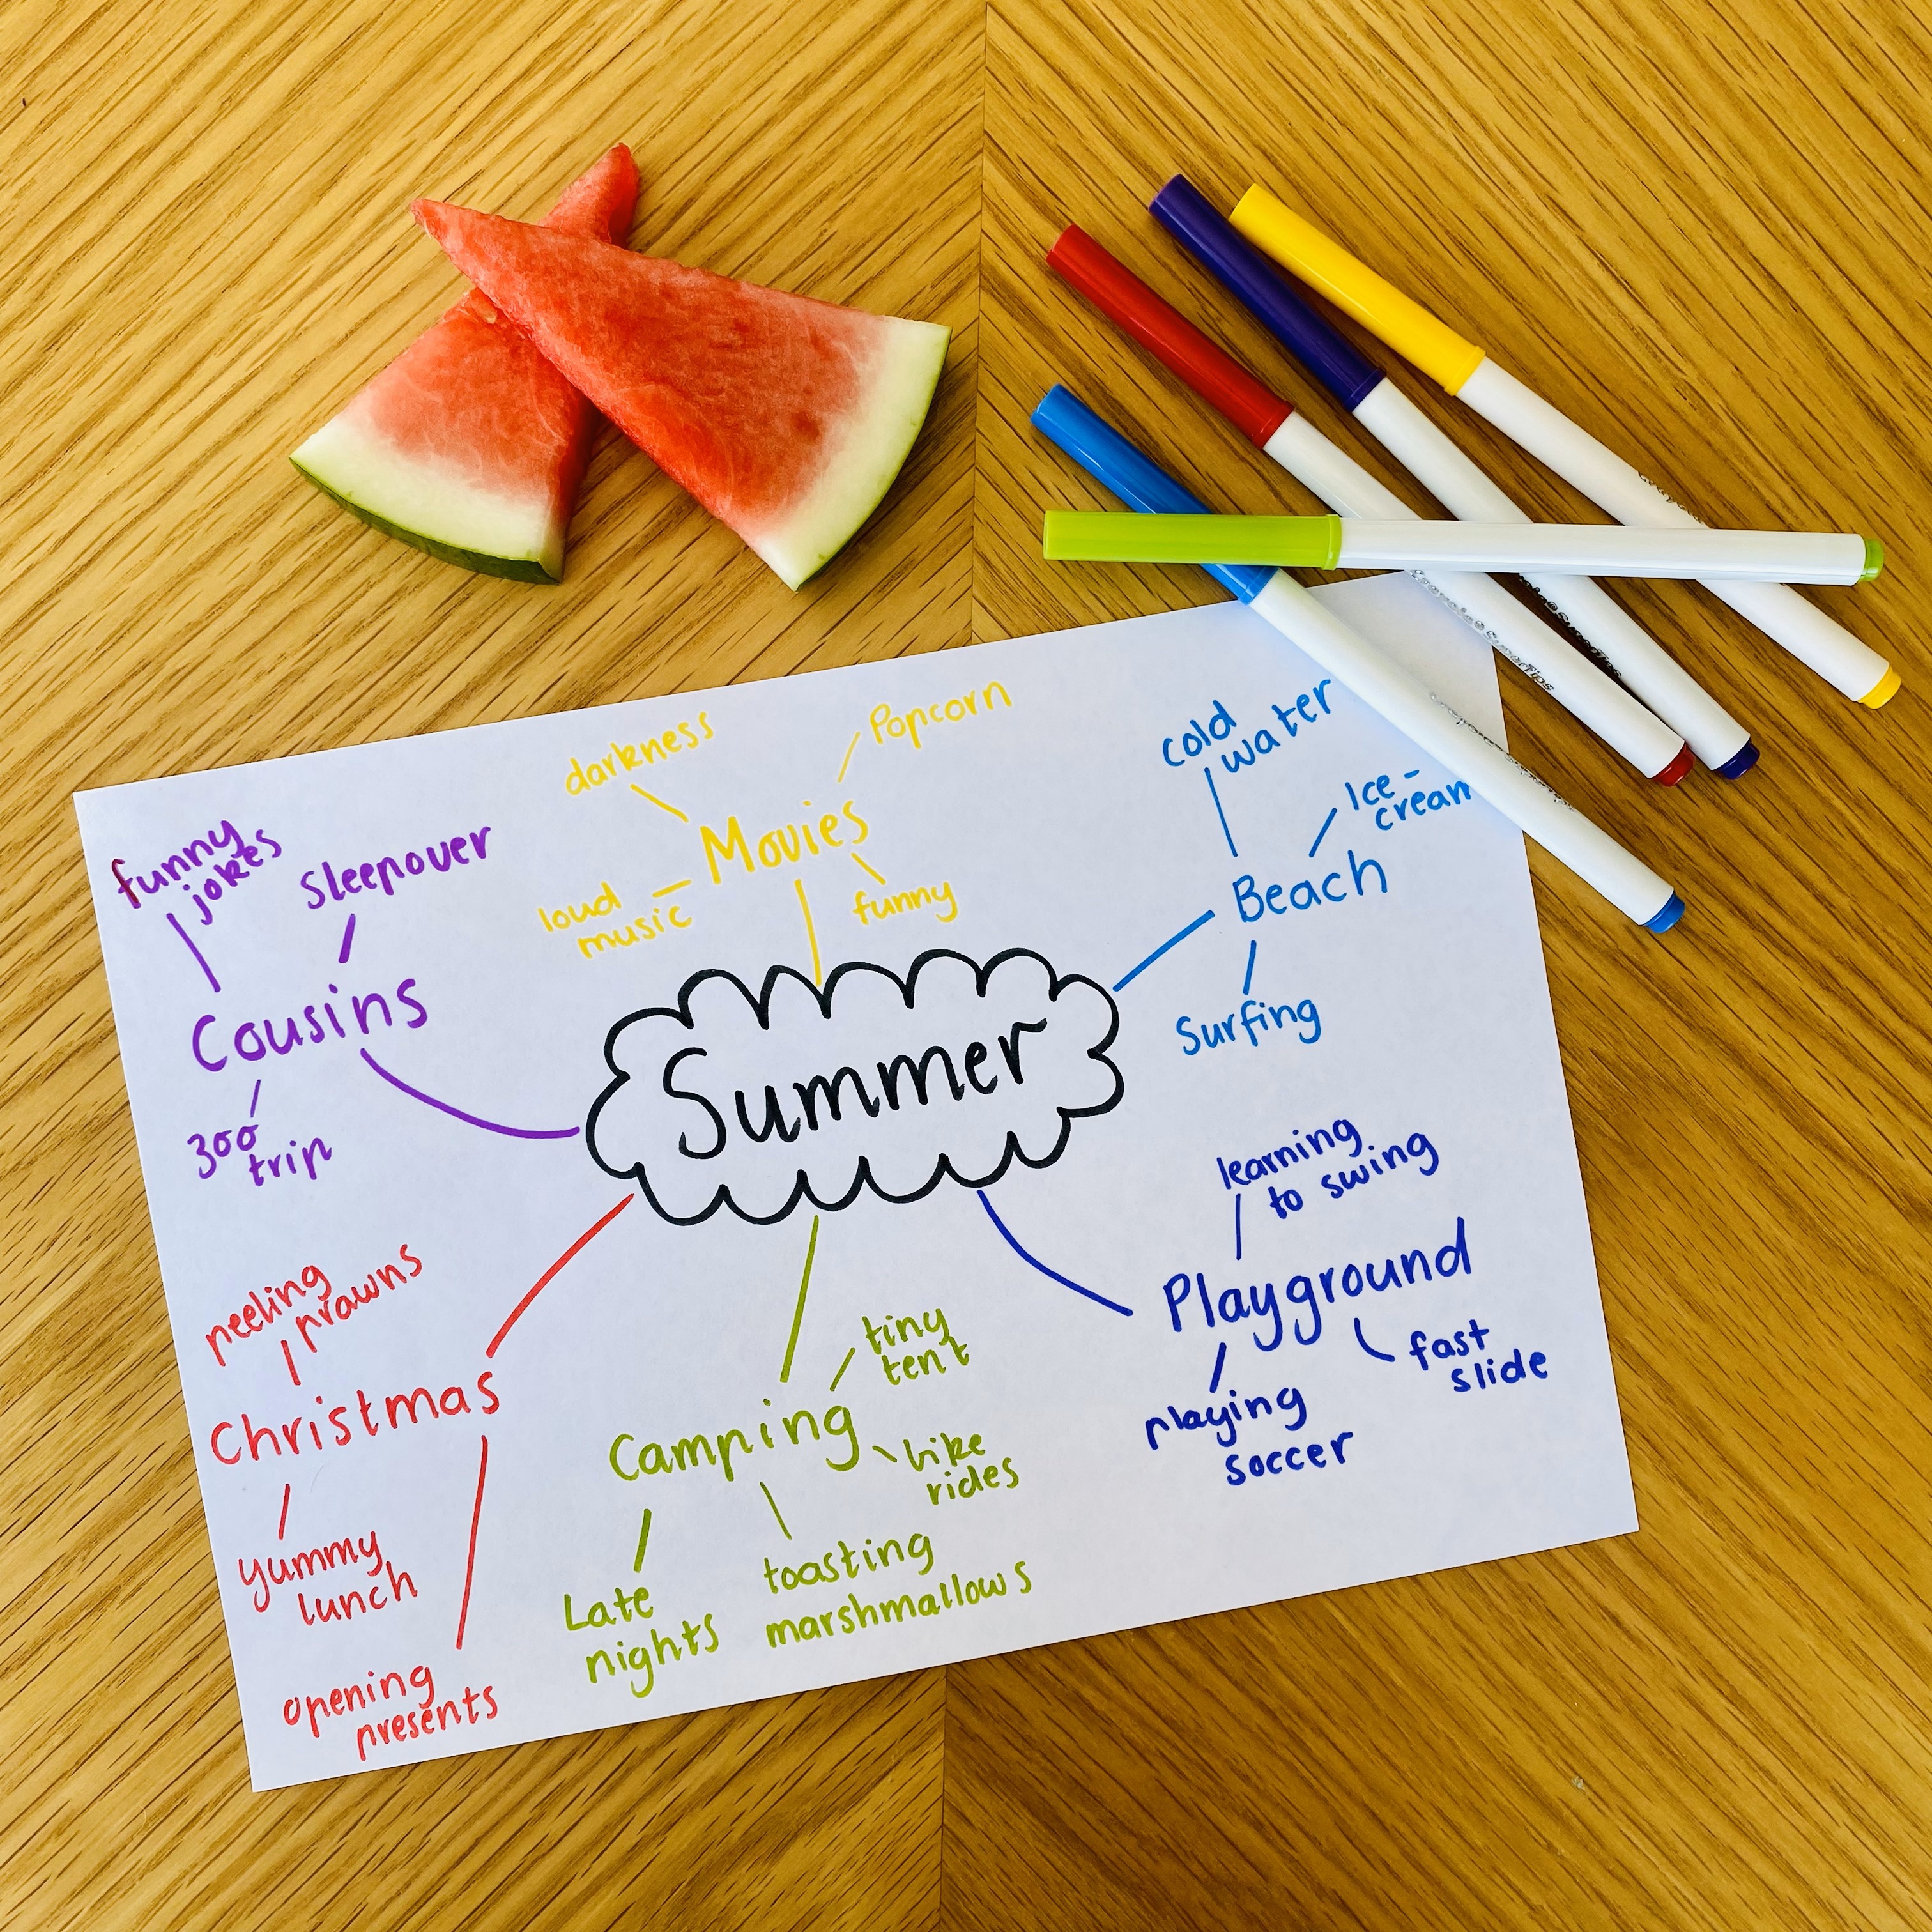 darkness
Popcorn
Movies
loud
music
funny
cold
water
Ice-
cream
Beach
Surfing
funny
jokes
Sleepover
Cousins
300
trip
Summer
learning
to swing
Playground
fast
slide
playing
soccer
peeling
prawns
Christmas
yummy
lunch
opening
presents
tiny
tent
Camping
bike
rides
Late
nights
toasting
marshmallows